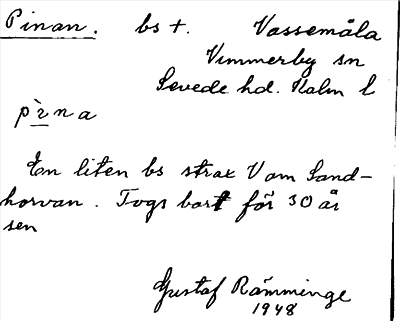 Pinan. bs +. Vassemåla
Vimmerby sn
Sevede hd. Kalm l
pìna
En liten bs strax V om Sand-
horvan. Togs bort för 30 år
sen
Gustaf Rämminge
1948